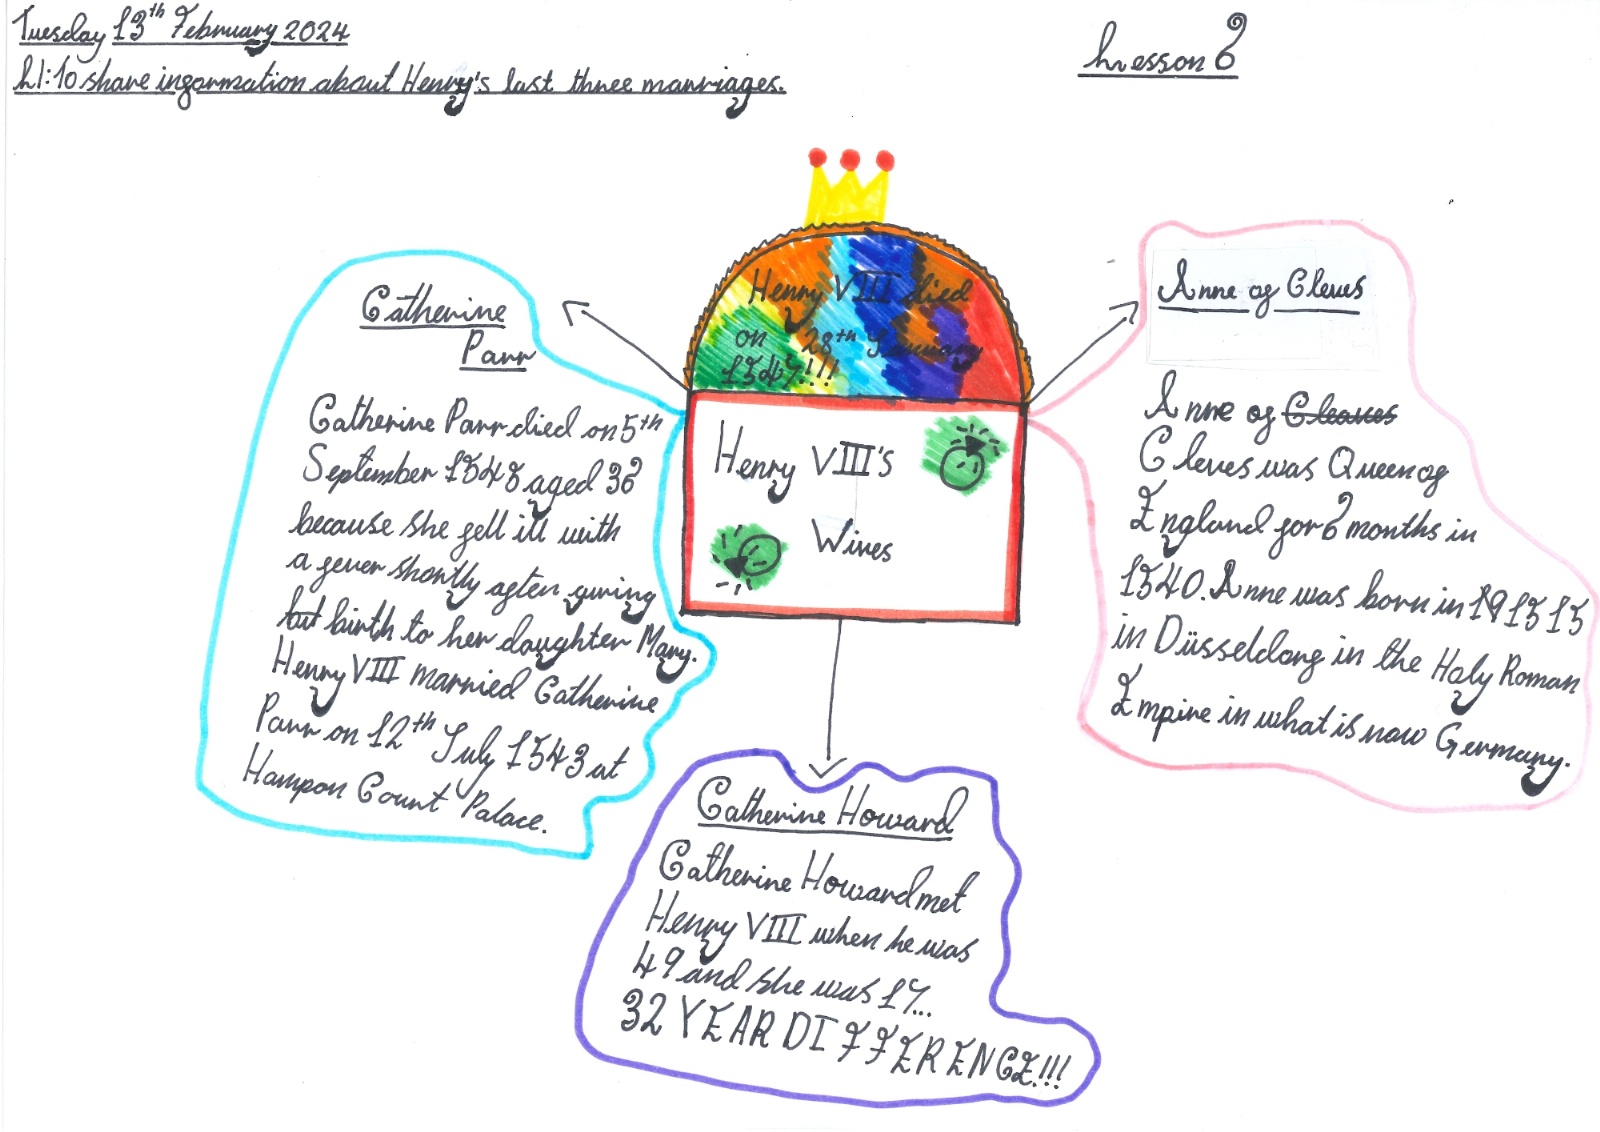 Tuesday 13th February 2024
LI: To share information about Henry's last three marriages.
Lesson 6
Henry VIII died
on 28th January
1547!!!
Henry VIII's
Wives
Catherine
Parr
Catherine Parr died on 5th
September 1548 aged 36
because she fell ill with
a fever shortly after giving
but birth to her daughter Mary.
Henry VIII married Catherine
Parr on 12th July 1543 at
Hampon Court Palace.
Anne of Cleves
Anne of Cleaves
Cleves was Queen of
England for 6 months in
1540. Anne was born in 1515
in Düsseldorf in the Holy Roman
Empire in what is now Germany.
Catherine Howard
Catherine Howard met
Henry VIII when he was
49 and she was 17...
32 YEAR DIFFERENCE!!!